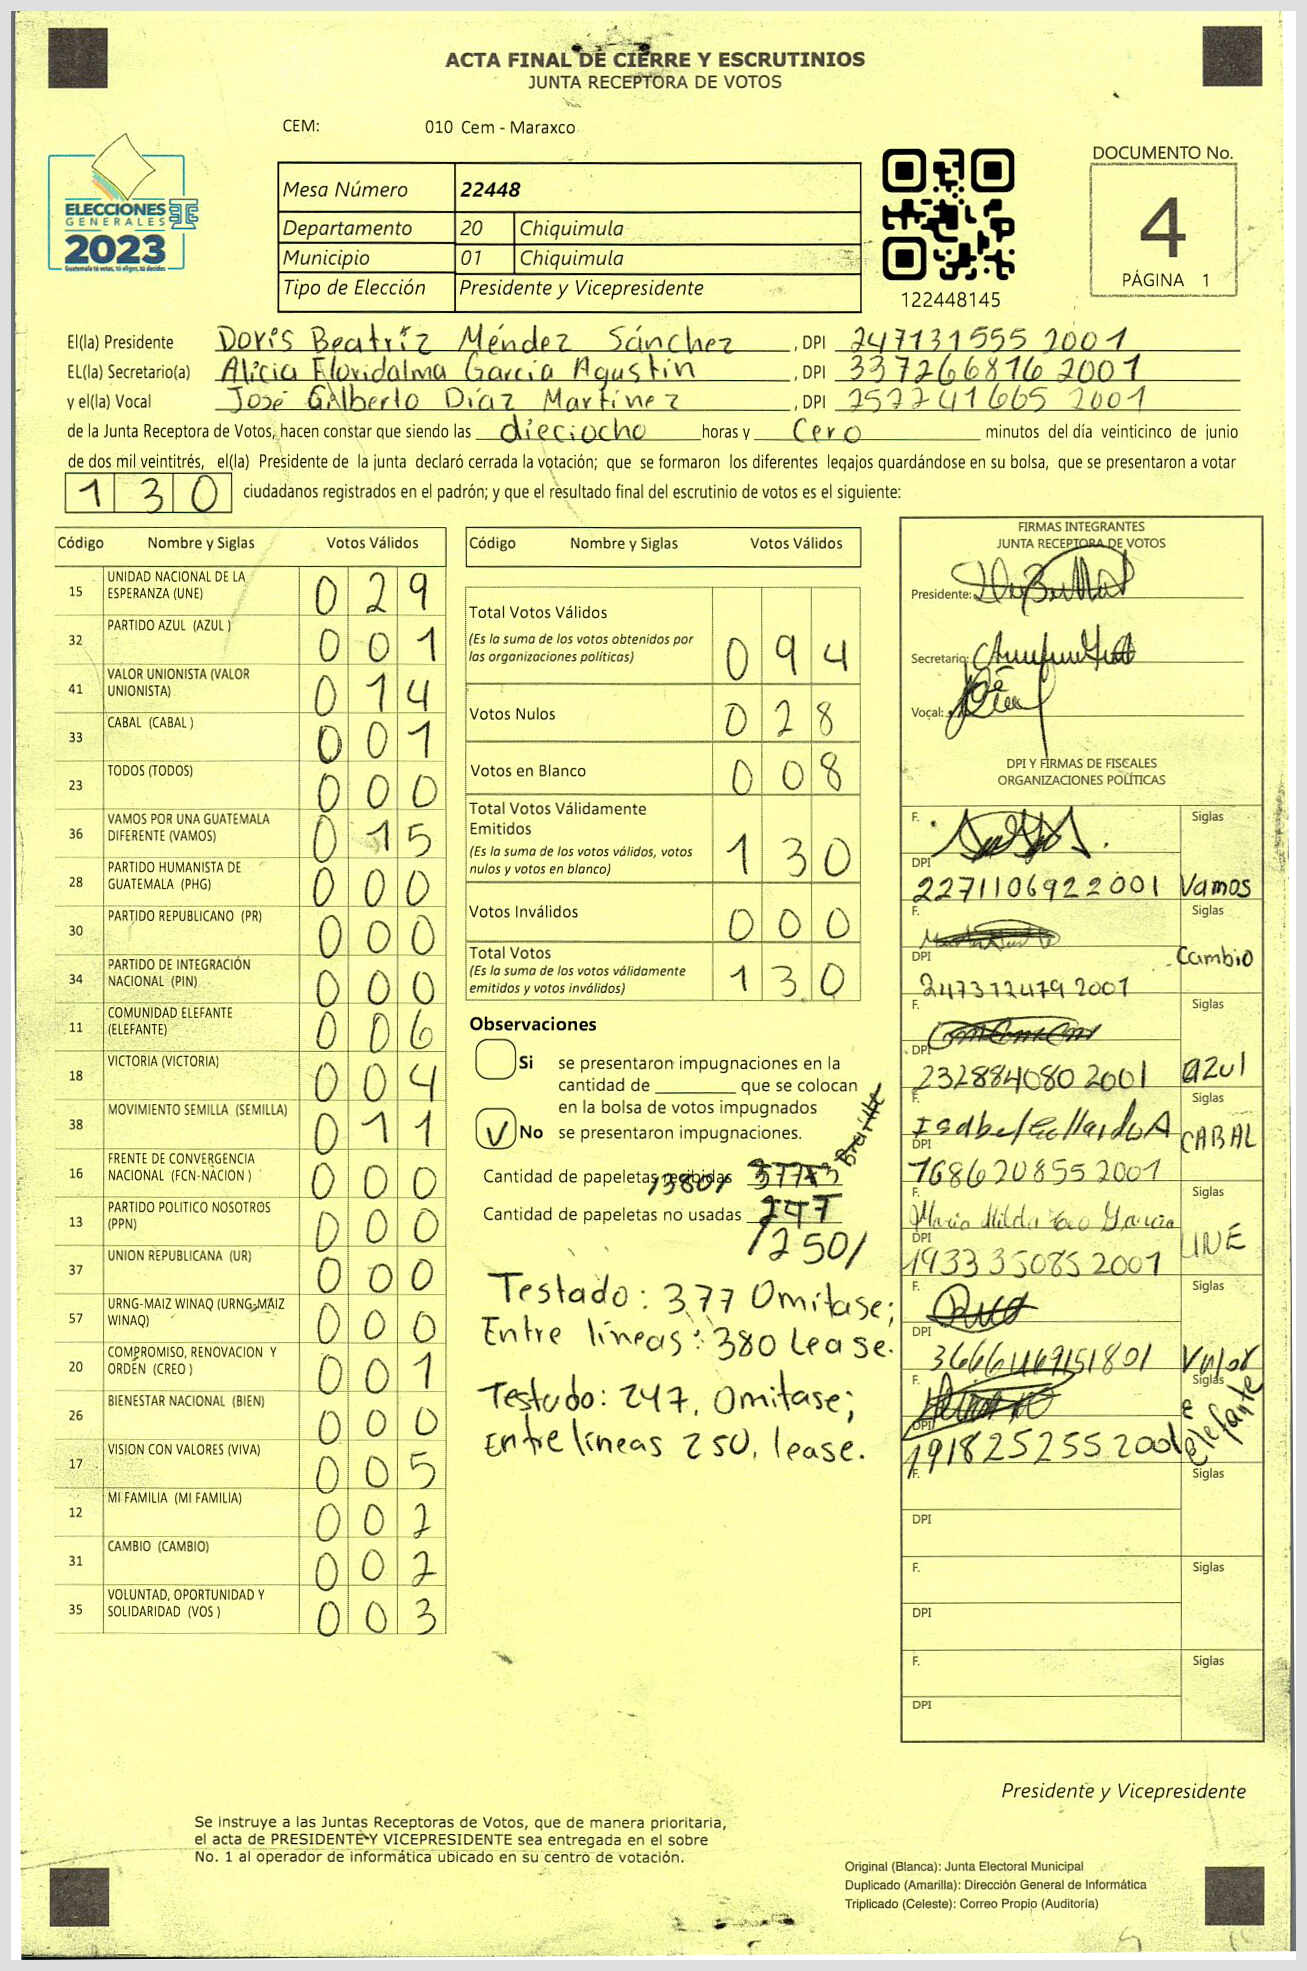 ACTA FINAL DE CIERRE Y ESCRUTINIOS
JUNTA RECEPTORA DE VOTOS
CEM: 010 Cem - Maraxco
ELECCIONES
GENERALES
2023
Guatemala tú votas, tú eliges, tú decides
Mesa Número 22448
Departamento 20 Chiquimula
Municipio 01 Chiquimula
Tipo de Elección Presidente y Vicepresidente
122448145
DOCUMENTO No.
4
PÁGINA 1
El(la) Presidente Doris Beatríz Méndez Sánchez, DPI 247131555 2001
EL(la) Secretario(a) Alicia Floridalma García Agustín, DPI 337266816 2001
y el(la) Vocal José Gilberto Díaz Martínez, DPI 252241665 2001
de la Junta Receptora de Votos, hacen constar que siendo las dieciocho horas y Cero minutos del día veinticinco de junio
de dos mil veintitrés, el(la) Presidente de la junta declaró cerrada la votación; que se formaron los diferentes legajos guardándose en su bolsa, que se presentaron a votar
130 ciudadanos registrados en el padrón; y que el resultado final del escrutinio de votos es el siguiente:
Código Nombre y Siglas Votos Válidos
15 UNIDAD NACIONAL DE LA ESPERANZA (UNE) 029
32 PARTIDO AZUL (AZUL ) 001
41 VALOR UNIONISTA (VALOR UNIONISTA) 014
33 CABAL (CABAL ) 001
23 TODOS (TODOS) 000
36 VAMOS POR UNA GUATEMALA DIFERENTE (VAMOS) 015
28 PARTIDO HUMANISTA DE GUATEMALA (PHG) 000
30 PARTIDO REPUBLICANO (PR) 000
34 PARTIDO DE INTEGRACIÓN NACIONAL (PIN) 000
11 COMUNIDAD ELEFANTE (ELEFANTE) 006
18 VICTORIA (VICTORIA) 004
38 MOVIMIENTO SEMILLA (SEMILLA) 011
16 FRENTE DE CONVERGENCIA NACIONAL (FCN-NACION ) 000
13 PARTIDO POLITICO NOSOTROS (PPN) 000
37 UNION REPUBLICANA (UR) 000
57 URNG-MAIZ WINAQ (URNG-MAIZ WINAQ) 000
20 COMPROMISO, RENOVACION Y ORDEN (CREO ) 001
26 BIENESTAR NACIONAL (BIEN) 000
17 VISION CON VALORES (VIVA) 005
12 MI FAMILIA (MI FAMILIA) 002
31 CAMBIO (CAMBIO) 002
35 VOLUNTAD, OPORTUNIDAD Y SOLIDARIDAD (VOS ) 003
Código Nombre y Siglas Votos Válidos
Total Votos Válidos 094
(Es la suma de los votos obtenidos por
las organizaciones políticas)
Votos Nulos 028
Votos en Blanco 008
Total Votos Válidamente
Emitidos 130
(Es la suma de los votos válidos, votos
nulos y votos en blanco)
Votos Inválidos 000
Total Votos 130
(Es la suma de los votos válidamente
emitidos y votos inválidos)
Observaciones
Si se presentaron impugnaciones en la
cantidad de ________ que se colocan
en la bolsa de votos impugnados
V No se presentaron impugnaciones.
Cantidad de papeletas recibidas /380/
Cantidad de papeletas no usadas 247
/250/
Testado: 377 Omitase;
Entre líneas: 380 Lease.
Testado: 247, Omitase;
Entre líneas 250, lease.
FIRMAS INTEGRANTES
JUNTA RECEPTORA DE VOTOS
Presidente:
Secretario:
Vocal:
DPI Y FIRMAS DE FISCALES
ORGANIZACIONES POLÍTICAS
F. Siglas
DPI
227110692 2001 Vamos
F. Siglas
DPI Cambio
247312479 2001
F. Siglas
DPI
232884080 2001 azul
F. Siglas
DPI CABAL
768620855 2001
F. Siglas
DPI UNE
193335085 2001
F. Siglas
DPI
Valor
F. Siglas
DPI elefante
191825255 2001
F. Siglas
DPI
F. Siglas
DPI
F. Siglas
DPI
Presidente y Vicepresidente
Se instruye a las Juntas Receptoras de Votos, que de manera prioritaria,
el acta de PRESIDENTE Y VICEPRESIDENTE sea entregada en el sobre
No. 1 al operador de informática ubicado en su centro de votación.
Original (Blanca): Junta Electoral Municipal
Duplicado (Amarilla): Dirección General de Informática
Triplicado (Celeste): Correo Propio (Auditoría)